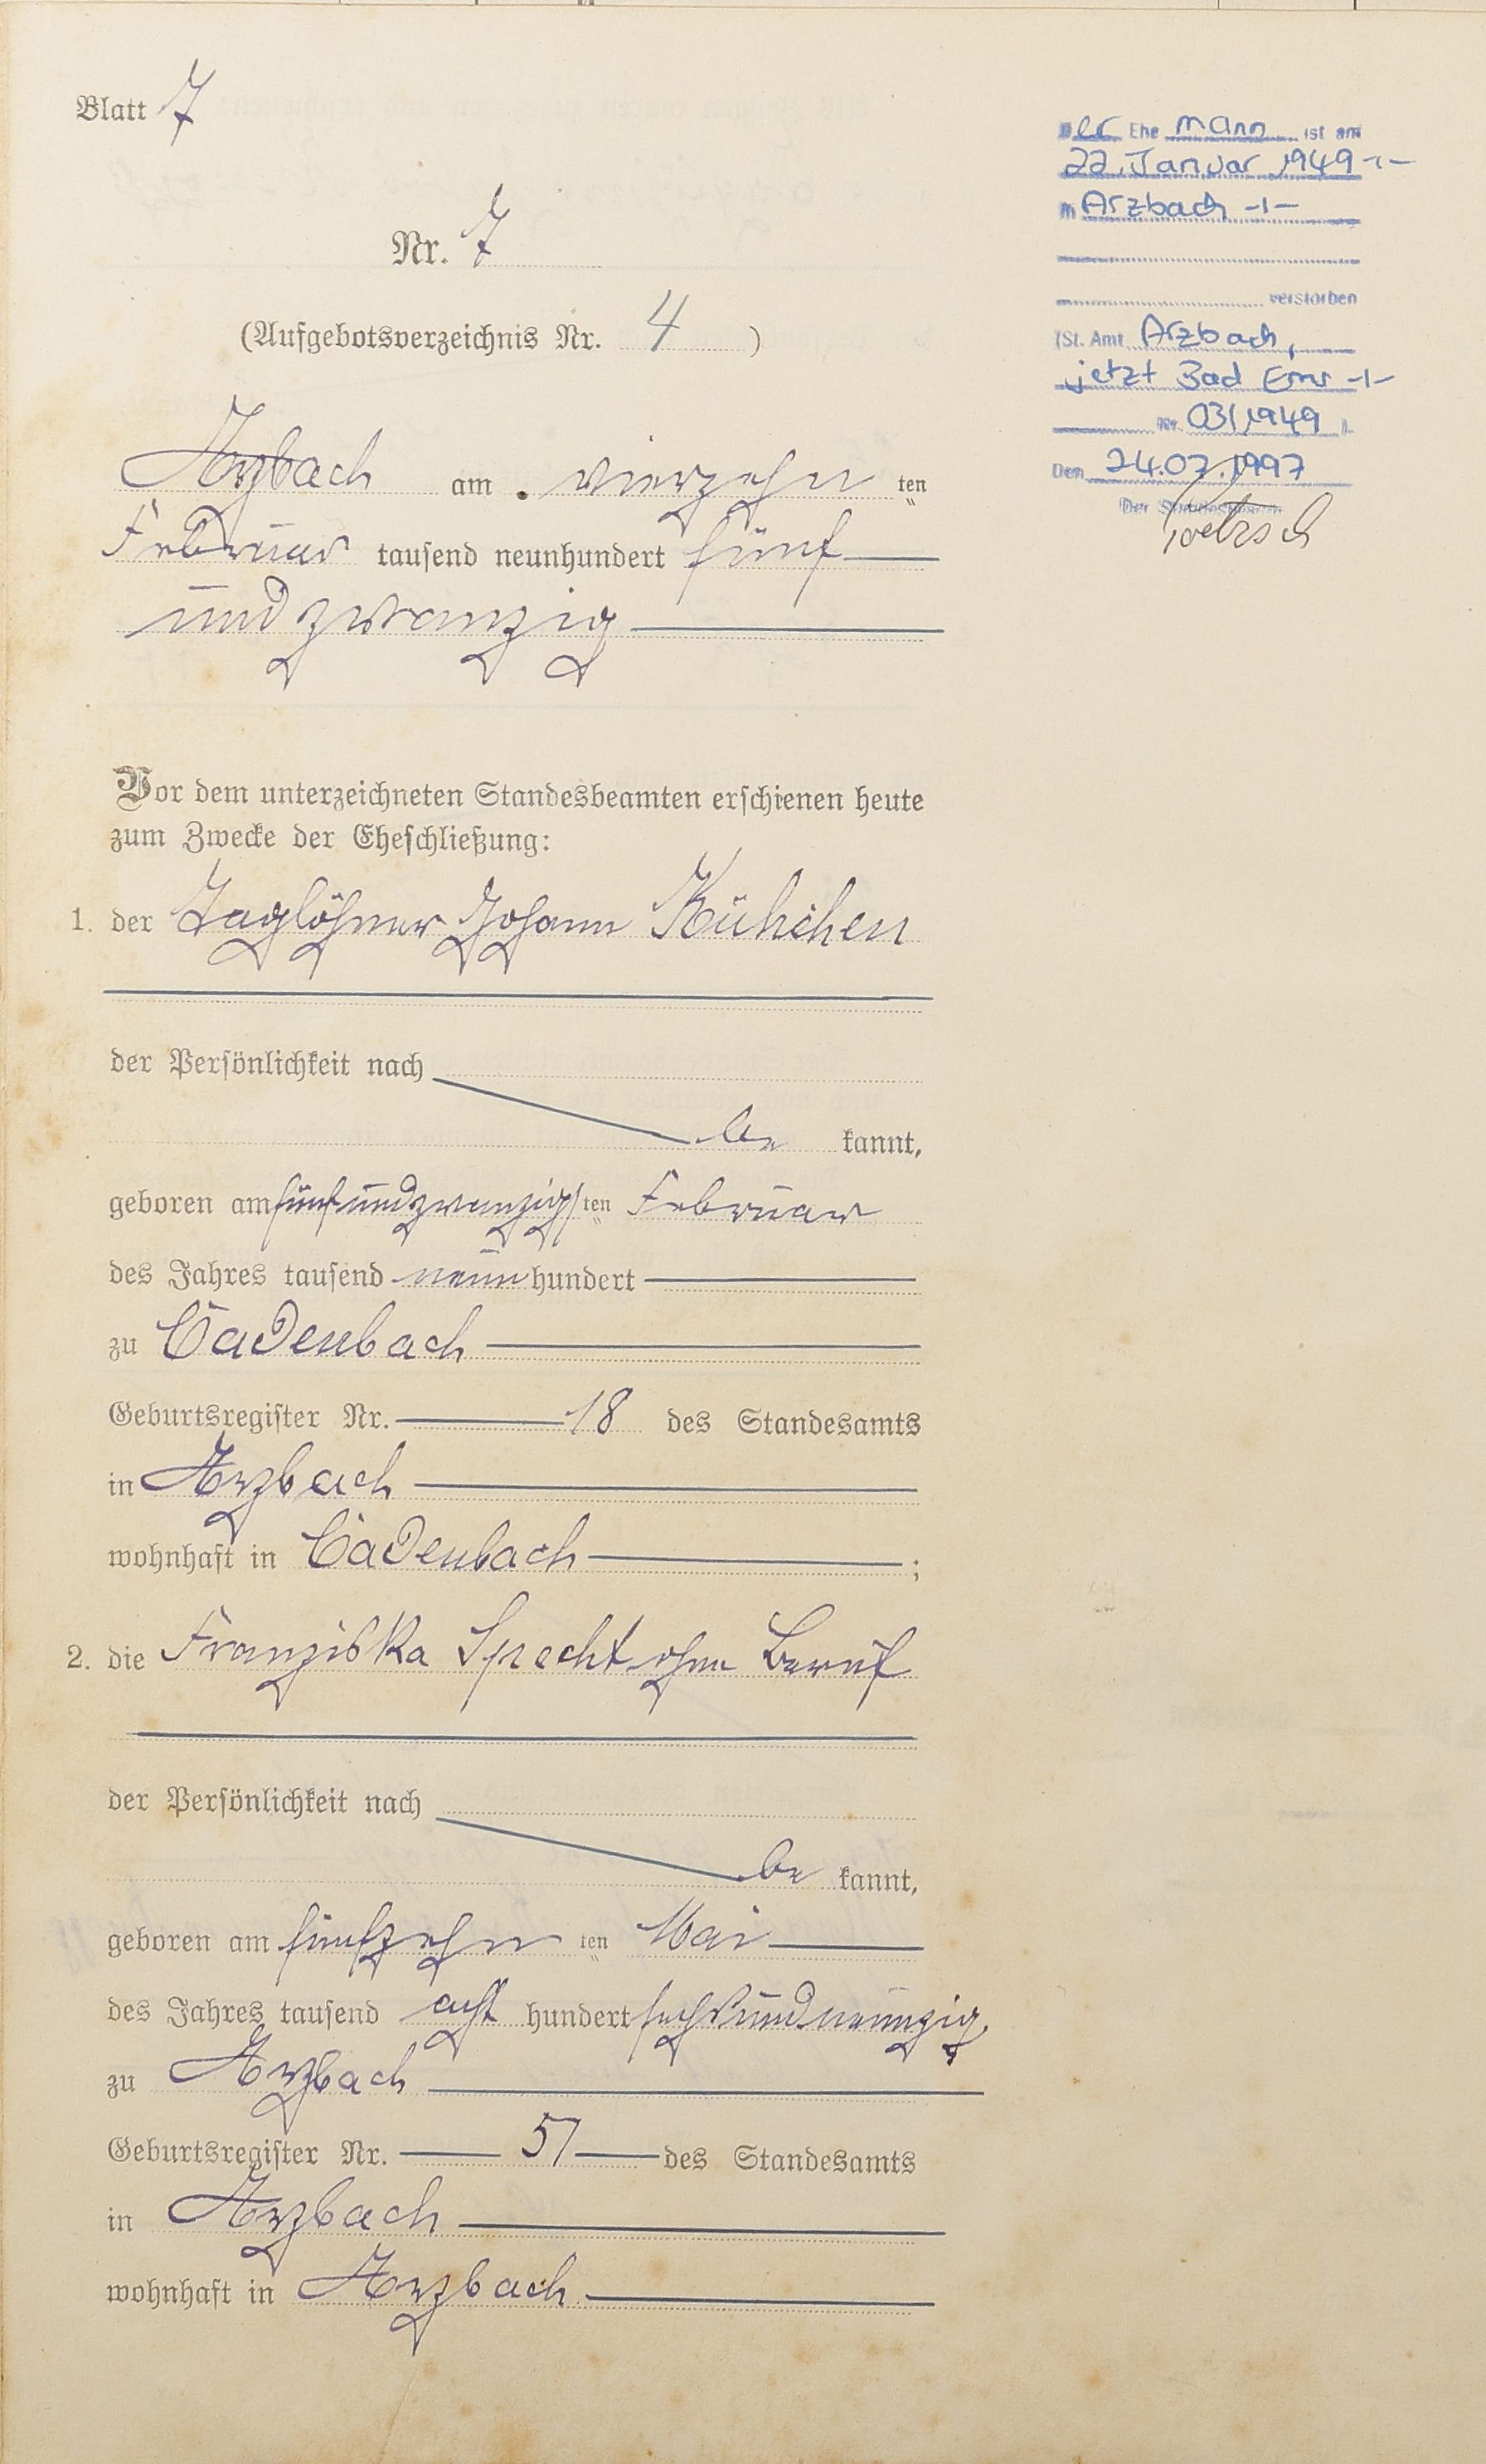 Blatt 7
Nr. 7
(Aufgebotsverzeichnis Nr. 4 )
Arzbach am vierzehn ten
Februar tausend neunhundert fünf
und zwanzig
Vor dem unterzeichneten Standesbeamten erschienen heute
zum Zwecke der Eheschließung:
1. der Taglöhner Johann Kühchen
der Persönlichkeit nach
be kannt,
geboren am fünfundzwanzigs ten Februar
des Jahres tausend neun hundert
zu Cadenbach
Geburtsregister Nr. 18 des Standesamts
in Arzbach
wohnhaft in Cadenbach ;
2. die Franziska Specht ohne Beruf
der Persönlichkeit nach
be kannt,
geboren am fünfzehn ten Mai
des Jahres tausend acht hundert sechsundneunzig
zu Arzbach
Geburtsregister Nr. 51 des Standesamts
in Arzbach
wohnhaft in Arzbach
Der Ehe mann ist am
22. Januar 1949 -/-
in Arzbach -/-
verstorben
(St. Amt Arzbach,
jetzt Bad Ems -/-
Nr. 03/1949 ).
Den 24.07.1997
Der Standesbeamte